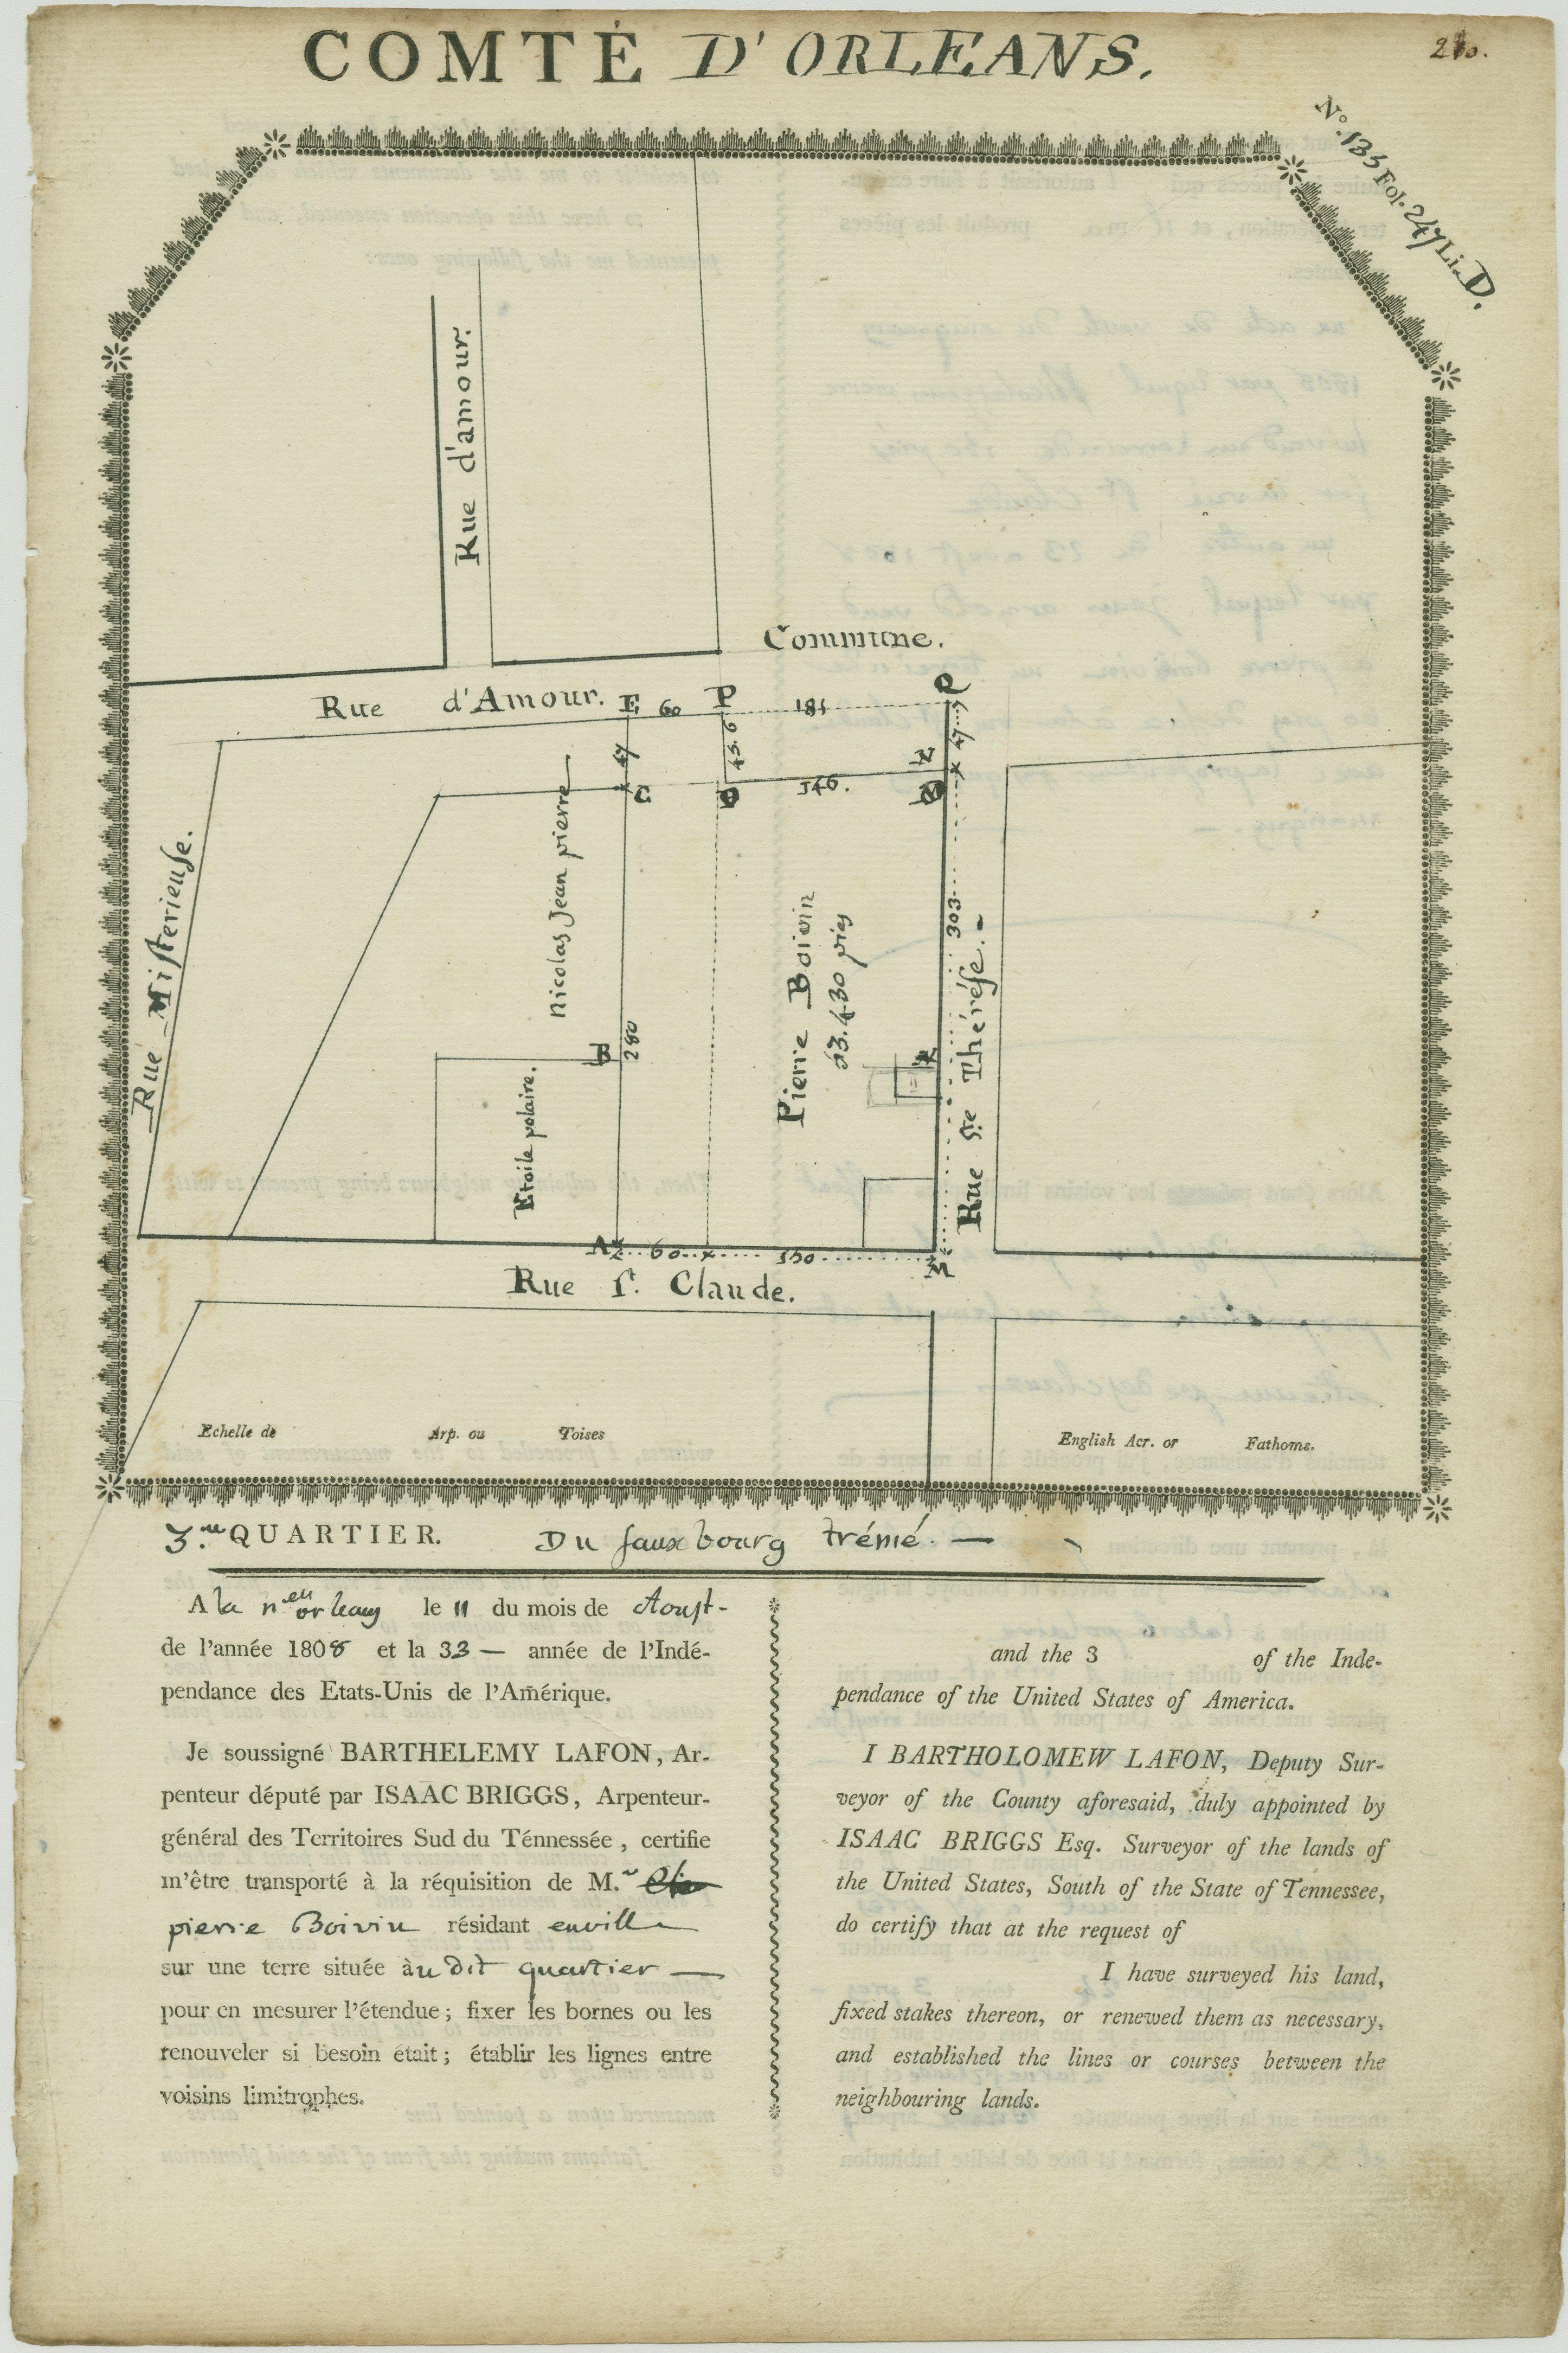 COMTÉ D'ORLEANS.
210.
No. 135 Fol. 247 Li. D.
Rue d'amour.
Commune.
Rue d'Amour. E 60 P 181 Q
47
43.6
47
C O 146. N
Nicolas Jean pierre
Rue Misterieuse.
303
Pierre Boivin
63.430 pies
Rue Ste Thérése.
B 280
Etoile polaire.
A 60 150 M
Rue St. Claude.
Echelle de Arp. ou Toises
English Acr. or Fathoms.
3.me QUARTIER. Du fauxbourg trémé.
A la nelle orleans le 11 du mois de Aoust-
de l'année 1808 et la 33 — année de l'Indé-
pendance des Etats-Unis de l'Amérique.
Je soussigné BARTHELEMY LAFON, Ar-
penteur député par ISAAC BRIGGS, Arpenteur-
général des Territoires Sud du Ténnessée, certifie
m'être transporté à la réquisition de M.r
pierre Boivin résidant enville
sur une terre située àu dit quartier —
pour en mesurer l'étendue; fixer les bornes ou les
renouveler si besoin était; établir les lignes entre
voisins limitrophes.
and the 3 of the Inde-
pendance of the United States of America.
I BARTHOLOMEW LAFON, Deputy Sur-
veyor of the County aforesaid, duly appointed by
ISAAC BRIGGS Esq. Surveyor of the lands of
the United States, South of the State of Tennessee,
do certify that at the request of
I have surveyed his land,
fixed stakes thereon, or renewed them as necessary,
and established the lines or courses between the
neighbouring lands.